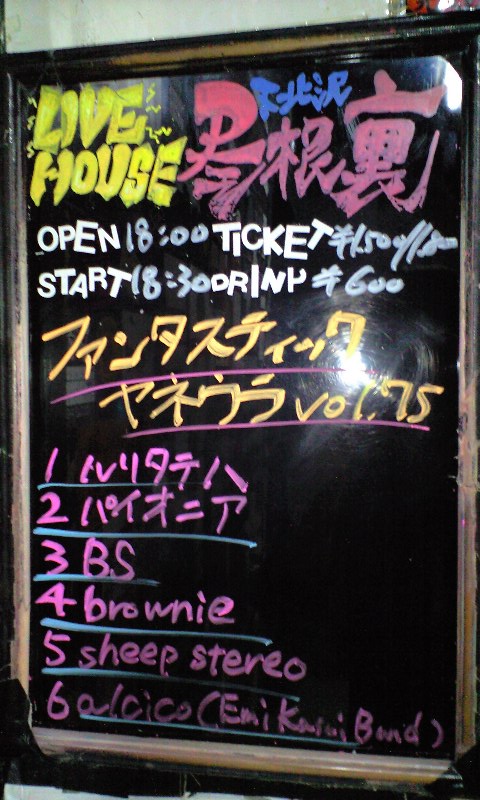 LIVE HOUSE
下北沢
屋根裏
OPEN 18:00 TICKET ¥1,500/1,800
START 18:30 DRINK ¥600
ファンタスティック
ヤネウラ vol.75
1 ルリタテハ
2 パイオニア
3 B.S
4 brownie
5 sheep stereo
6 alcico (Emi Kasai Band)